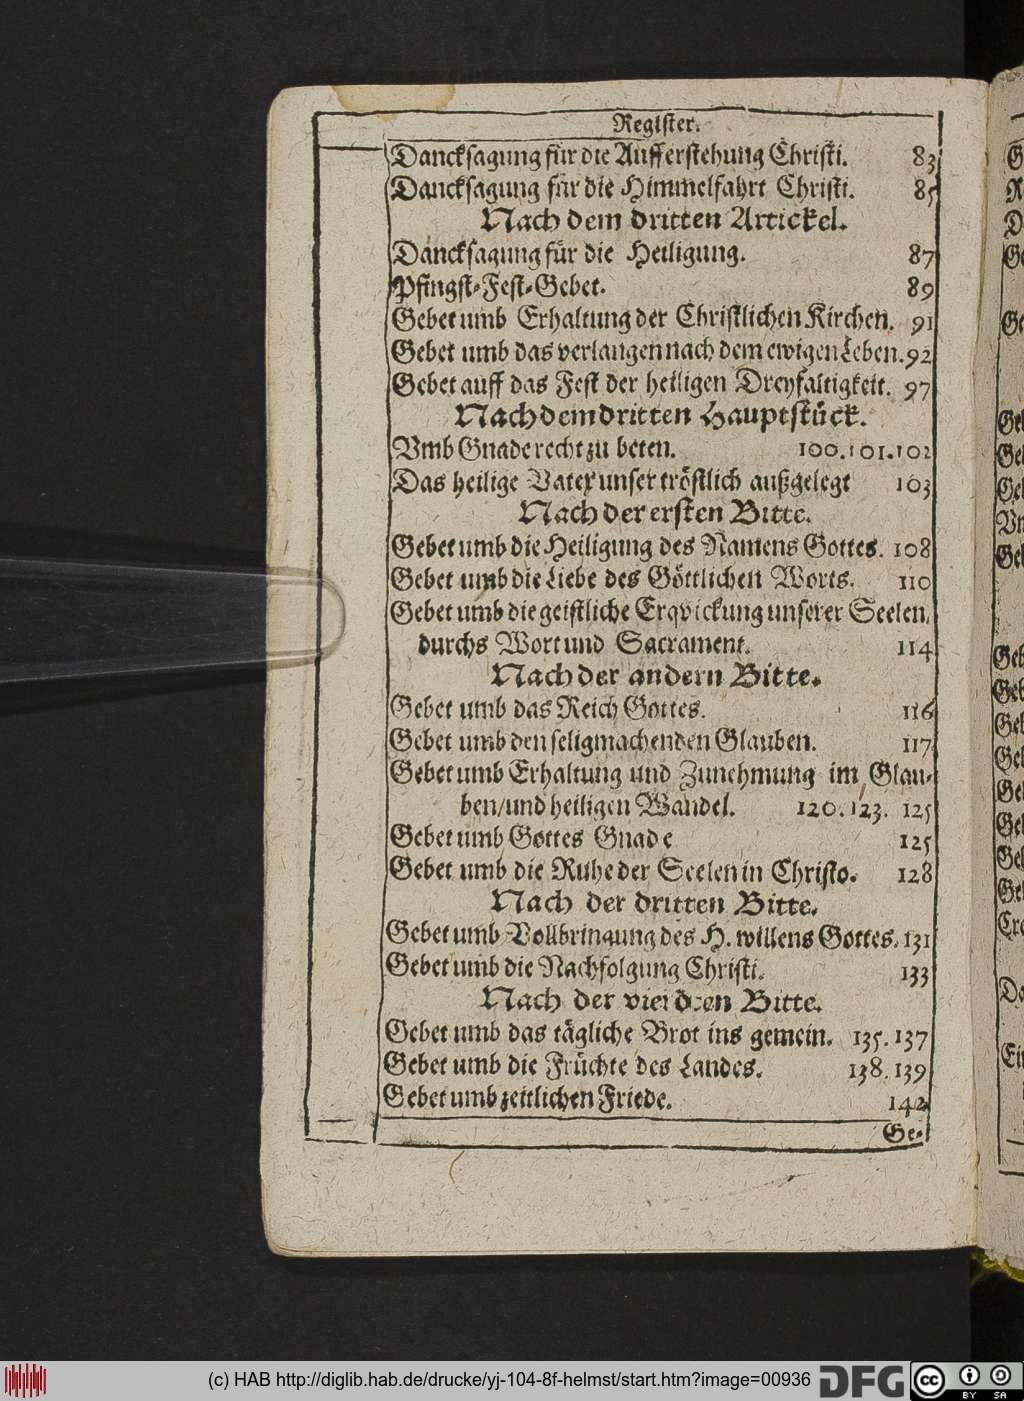 Register.
Dancksagung für die Aufferstehung Christi. 83
Dancksagung für die Himmelfahrt Christi. 85
Nach dem dritten Artickel.
Dancksagung für die Heiligung. 87
Pfingst-Fest-Gebet. 89
Gebet umb Erhaltung der Christlichen Kirchen. 91
Gebet umb das verlangen nach dem ewigen Leben. 92
Gebet auff das Fest der heiligen Dreyfaltigkeit. 97
Nach dem dritten Hauptstück.
Vmb Gnade recht zu beten. 100. 101. 102
Das heilige Vater unser tröstlich außgelegt 103
Nach der ersten Bitte.
Gebet umb die Heiligung des Namens Gottes. 108
Gebet umb die Liebe des Göttlichen Worts. 110
Gebet umb die geistliche Erqvickung unserer Seelen,
durchs Wort und Sacrament. 114
Nach der andern Bitte.
Gebet umb das Reich Gottes. 116
Gebet umb den seligmachenden Glauben. 117
Gebet umb Erhaltung und Zunehmung im Glau-
ben/und heiligen Wandel. 120. 123. 125
Gebet umb Gottes Gnade 125
Gebet umb die Ruhe der Seelen in Christo. 128
Nach der dritten Bitte.
Gebet umb Vollbringung des H. willens Gottes. 131
Gebet umb die Nachfolgung Christi. 133
Nach der vierdten Bitte.
Gebet umb das tägliche Brot ins gemein. 135. 137
Gebet umb die Früchte des Landes. 138. 139
Gebet umb zeitlichen Friede. 142
Ge-
(c) HAB http://diglib.hab.de/drucke/yj-104-8f-helmst/start.htm?image=00936
DFG
cc BY SA